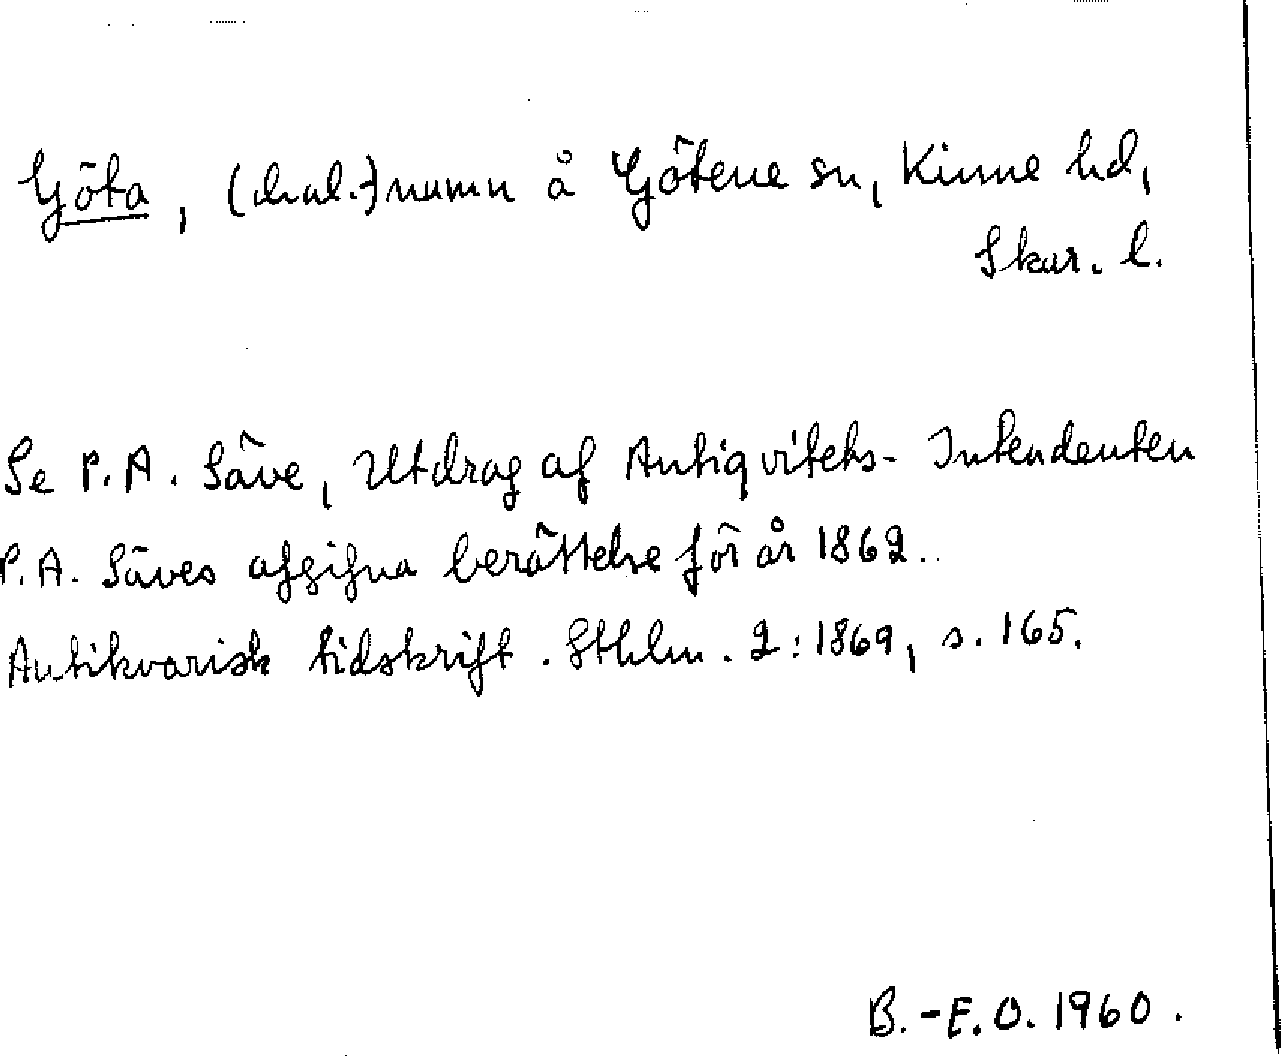 Göta, (dial.) namn å Götene sn, Kinne hd,
Skar. l.
Se P. A. Säve, Utdrag af Antiqvitets-Intendenten
P. A. Säves afgifna berättelse för år 1862..
Antikvarisk tidskrift. Sthlm. 2:1869, s. 165.
B.-E. O. 1960.